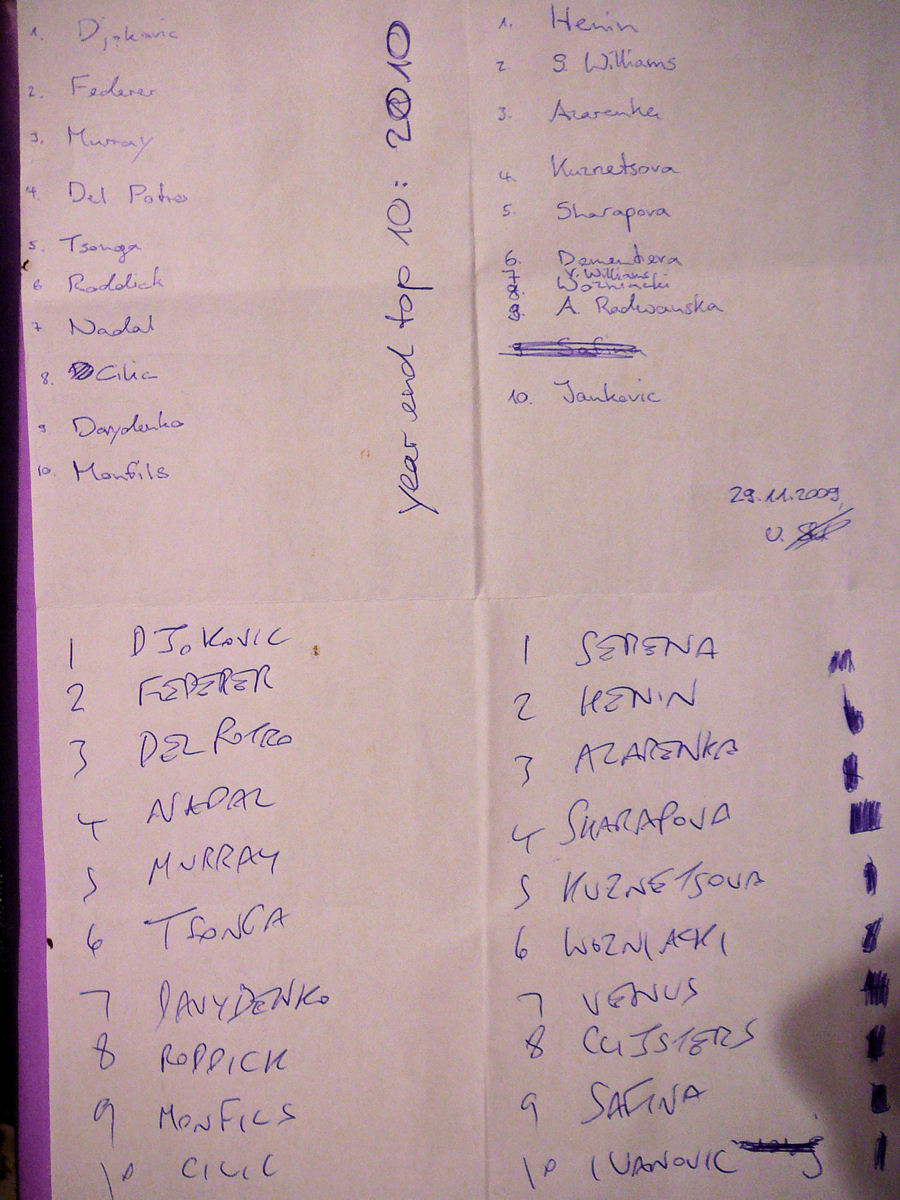 1. Djokovic
2. Federer
3. Murray
4. Del Potro
5. Tsonga
6 Roddick
7 Nadal
8. Cilic
9 Davydenko
10. Monfils
year end top 10: 2010
1. Henin
2 S. Williams
3. Azarenka
4. Kuznetsova
5. Sharapova
6. Dementieva
7 V. Williams
8. Wozniacki
9. A. Radwanska
9 Safina
10. Jankovic
29.11.2009
U.
1 DJOKOVIC
2 FEDERER
3 DEL POTRO
4 NADAL
5 MURRAY
6 TSONGA
7 DAVYDENKO
8 RODDICK
9 MONFILS
10 CILIC
1 SERENA
2 HENIN
3 AZARENKA
4 SHARAPOVA
5 KUZNETSOVA
6 WOZNIACKI
7 VENUS
8 CLIJSTERS
9 SAFINA
10 IVANOVIC